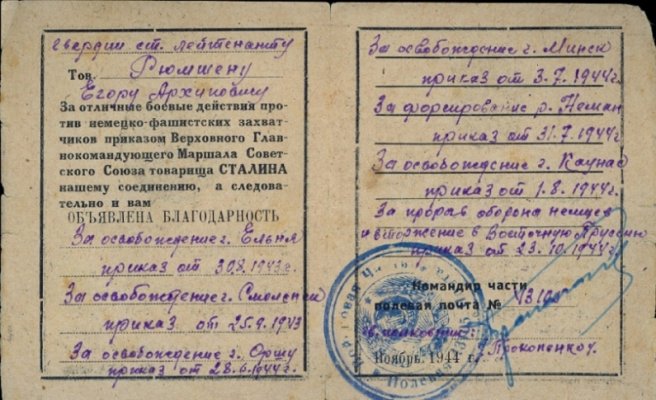 гвардии ст. лейтенанту
Тов. Рюмшену
Егору Архиповичу
За отличные боевые действия про-
тив немецко-фашистских захват-
чиков приказом Верховного Глав-
нокомандующего Маршала Совет-
ского Союза товарища СТАЛИНА
нашему соединению, а следова-
тельно и вам
ОБЪЯВЛЕНА БЛАГОДАРНОСТЬ
За освобождение г. Ельня
приказ от 30.8.1943г.
За освобождение г. Смоленск
приказ от 25.9.1943
За освобождение г. Оршу
приказ от 28.6.1944г.
За освобождение г. Минск
приказ от 3.7.1944г.
За форсирование р. Неман
приказ от 31.7.1944г.
За освобождение г. Каунас
приказ от 1.8.1944г.
За прорыв оборона немцев
и вторжение в Восточную Пруссию
приказ от 23.10.1944г.
Командир части
полевая почта №
гв. полковник:
Прокопенко
Ноябрь 1944 г.
Полевая